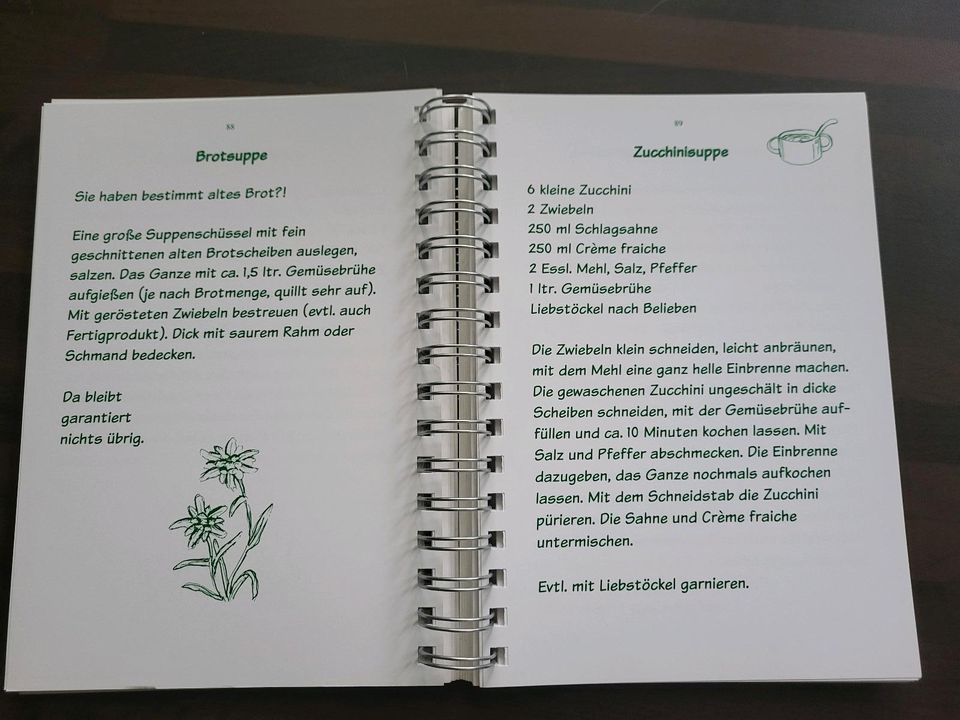 88
Brotsuppe
Sie haben bestimmt altes Brot?!
Eine große Suppenschüssel mit fein
geschnittenen alten Brotscheiben auslegen,
salzen. Das Ganze mit ca. 1,5 ltr. Gemüsebrühe
aufgießen (je nach Brotmenge, quillt sehr auf).
Mit gerösteten Zwiebeln bestreuen (evtl. auch
Fertigprodukt). Dick mit saurem Rahm oder
Schmand bedecken.
Da bleibt
garantiert
nichts übrig.
89
Zucchinisuppe
6 kleine Zucchini
2 Zwiebeln
250 ml Schlagsahne
250 ml Crème fraiche
2 Essl. Mehl, Salz, Pfeffer
1 ltr. Gemüsebrühe
Liebstöckel nach Belieben
Die Zwiebeln klein schneiden, leicht anbräunen,
mit dem Mehl eine ganz helle Einbrenne machen.
Die gewaschenen Zucchini ungeschält in dicke
Scheiben schneiden, mit der Gemüsebrühe auf-
füllen und ca. 10 Minuten kochen lassen. Mit
Salz und Pfeffer abschmecken. Die Einbrenne
dazugeben, das Ganze nochmals aufkochen
lassen. Mit dem Schneidstab die Zucchini
pürieren. Die Sahne und Crème fraiche
untermischen.
Evtl. mit Liebstöckel garnieren.